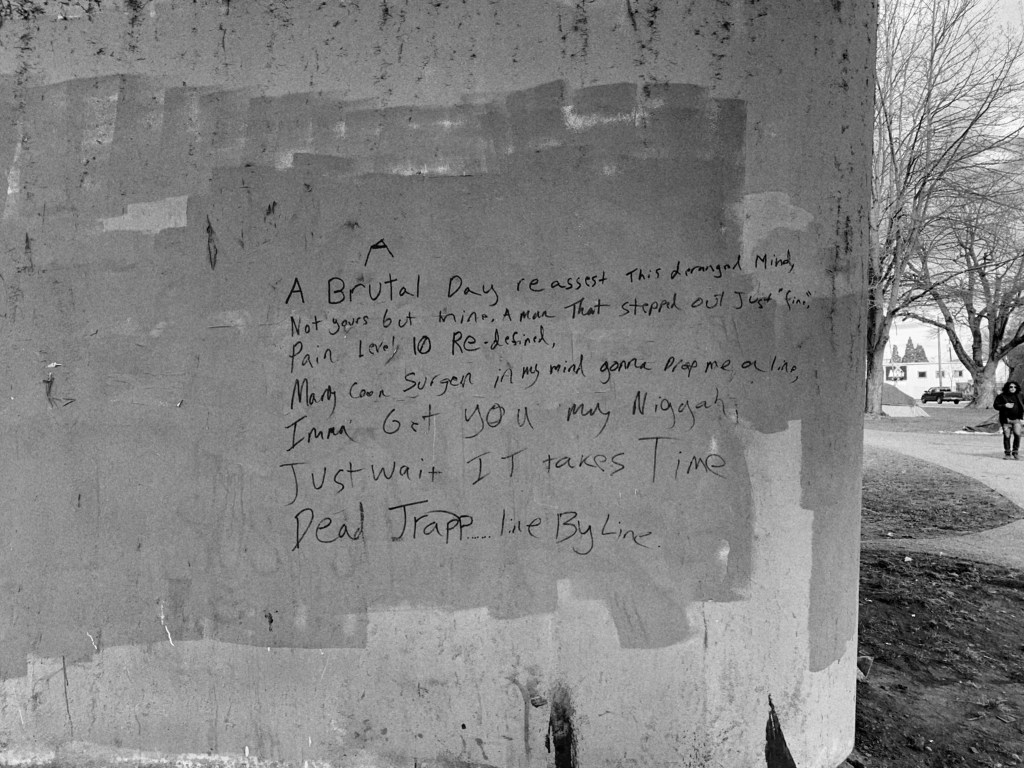 A
A Brutal Day reassest This deranged Mind,
Not yours but mine. A man That stepped out Just "fine",
Pain Level 10 Re-defined,
Many Surgen in my mind gonna Drop me a line,
Imma Get you my Niggah,
Just wait IT takes Time
Dead Trapp..... line By Line.